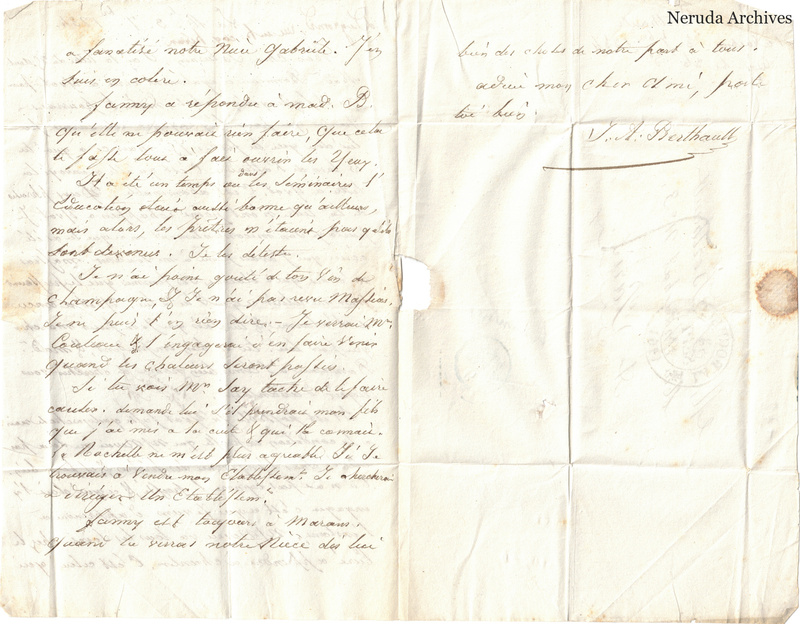 Neruda Archives
a fanatisé notre Niéce Gabriéle. J'en
suis en colère.
fanny a répondu à mad. B.
qu'elle ne pouvait rien faire, que cela
te fasse tous à fait ouvrir les yeux.
Il a été un temps ou dans les Séminaires l'
Education était aussi bonne qu'ailleurs,
mais alors, les prêtres n'étaient pas ce qu'ils
sont devenus. Je les déteste.
Je n'ai point gouté de ton Vin de
Champagne, & Je n'ai pas revu Massias.
Je ne puis t'en rien dire. - Je verrai Mr.
& l'engagerai à en faire venir
quand les chaleurs seront passées.
Si tu vois Mr. Say tache de le faire
causer. demande lui s'il prendrait mon fils
que j'ai mis a la &  qui la connait.
La Rochelle ne m'est plus agréable. Si Je
trouvais à vendre mon Etablissemt. Je chercherai
a diriger Un Etablissemt.
fanny est toujours à Marans.
quand tu verras notre Niéce dis lui
bien des choses de notre part à tous.
adieu mon cher ami, porte
toi bien.
J. A. Berthault